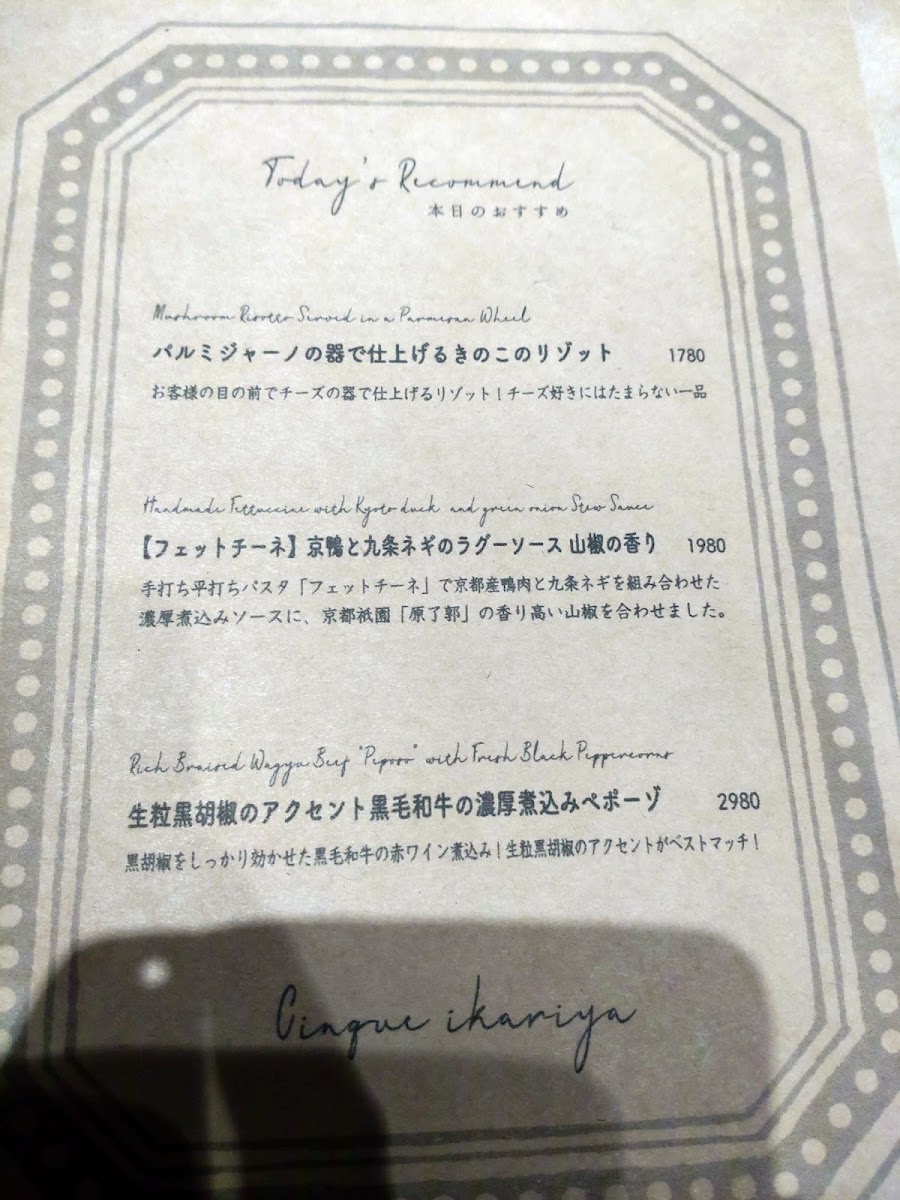 Today's Recommend
本日のおすすめ
Mushroom Risotto Served in a Parmesan Wheel
パルミジャーノの器で仕上げるきのこのリゾット 1780
お客様の目の前でチーズの器で仕上げるリゾット！チーズ好きにはたまらない一品
Handmade Fettuccine with Kyoto duck and green onion Stew Sauce
【フェットチーネ】京鴨と九条ネギのラグーソース 山椒の香り 1980
手打ち平打ちパスタ「フェットチーネ」で京都産鴨肉と九条ネギを組み合わせた
濃厚煮込みソースに、京都祇園「原了郭」の香り高い山椒を合わせました。
Rich Braised Wagyu Beef "Peposo" with Fresh Black Peppercorns
生粒黒胡椒のアクセント黒毛和牛の濃厚煮込みペポーゾ 2980
黒胡椒をしっかり効かせた黒毛和牛の赤ワイン煮込み！生粒黒胡椒のアクセントがベストマッチ！
Cinque ikariya